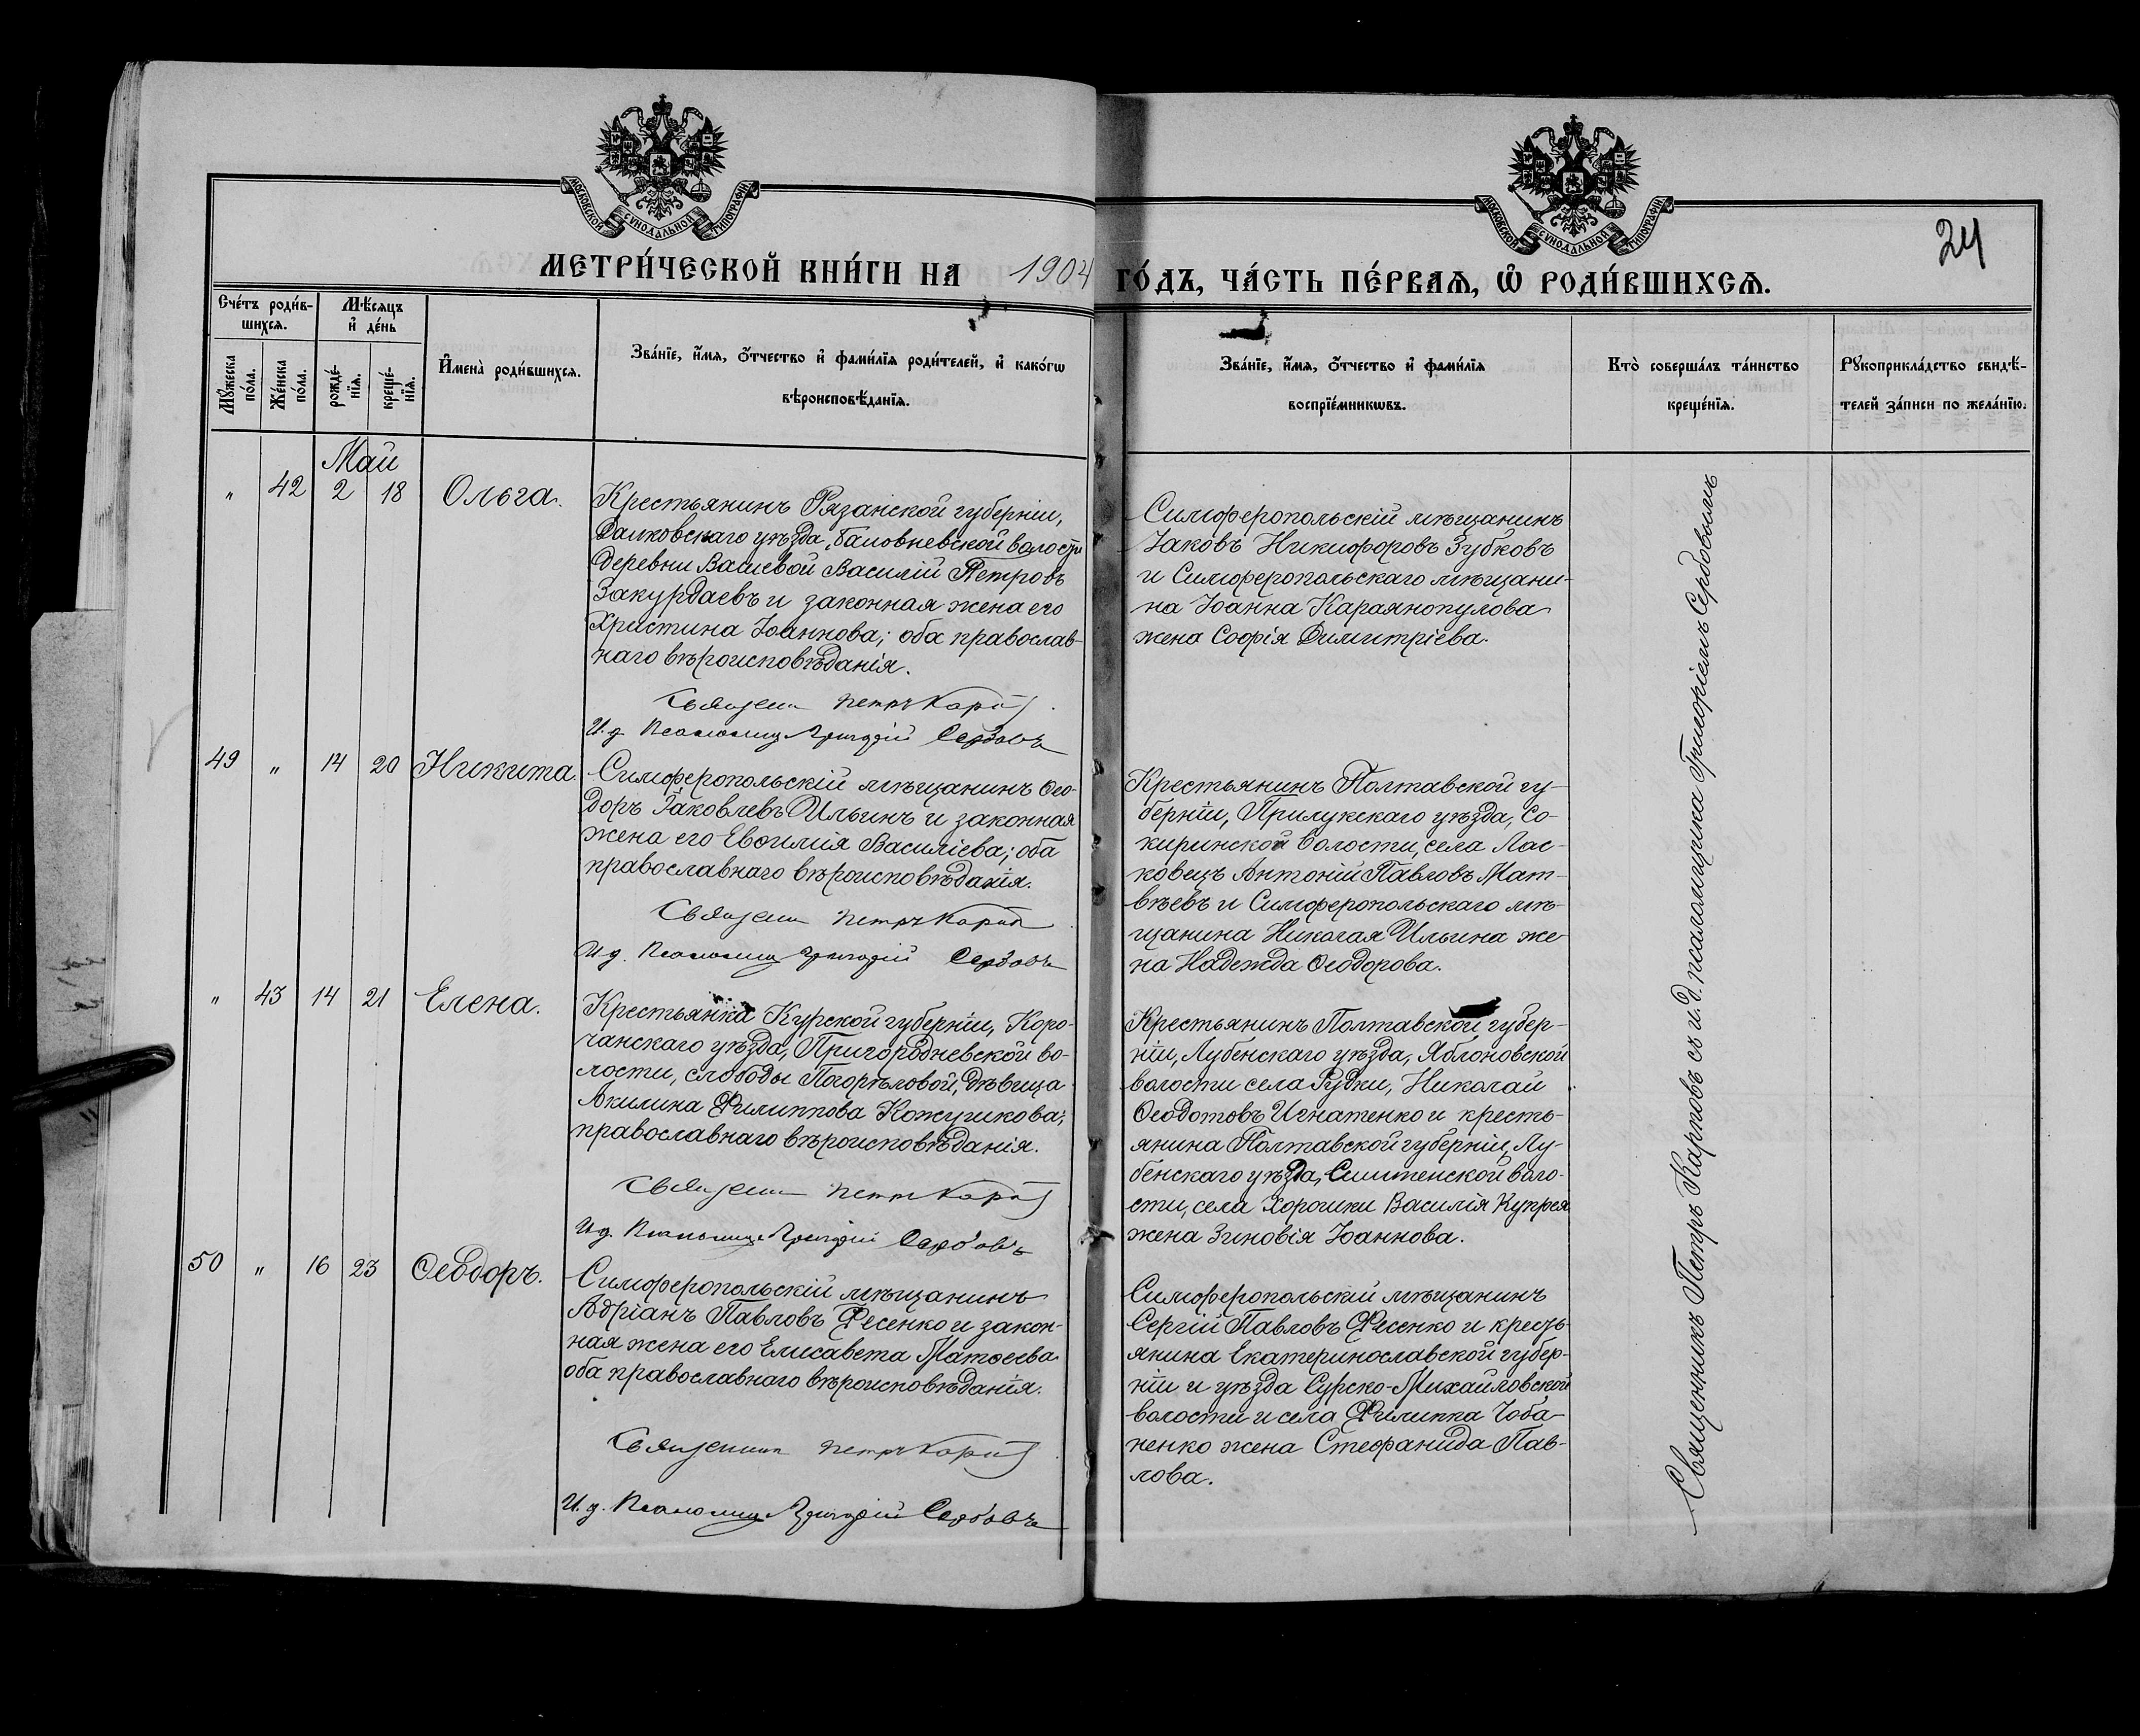 МОСКОВСКОЙ СѴНОДАЛЬНОЙ ТИПОГРАФІИ
МОСКОВСКОЙ СѴНОДАЛЬНОЙ ТИПОГРАФІИ
24
МЕТРИ́ЧЕСКОЙ КНИ́ГИ НА 1904 ГО́ДЪ, ЧА́СТЬ ПЕ́РВАѦ, Ѡ҆ РОДИ́ВШИХСѦ.
Сче́тъ роди́в-
шихсѧ.
Мѣ́сѧцъ
и҆ де́нь
Мꙋ́жеска
по́ла.
Же́нска
по́ла.
рожде́-
нїѧ.
креще́-
нїѧ.
И҆мена̀ роди́вшихсѧ.
Зва́нїе, и҆́мѧ, ѻ҆́тчество и҆ фами́лїѧ роди́телей, и҆ како́гѡ
вѣроисповѣ́данїѧ.
Зва́нїе, и҆́мѧ, ѻ҆́тчество и҆ фами́лїѧ
воспрїе́мникѡвъ.
Кто̀ соверша́лъ та́инство
креще́нїѧ.
Рꙋкоприкла́дство свидѣ́-
телей за́писи по жела́нїю.
Май
" 42 2 18 Ольга.
Крестьянинъ Рязанской губерніи,
Данковскаго уѣзда, Баловневской волости
деревни Василій Петровъ
Закурдаевъ и законная жена его
Христина Іоаннова; оба православ-
наго вѣроисповѣданія.
Священ Петръ Карп
И. д. Псаломщ Григорій Сербовъ
Симферопольскій мѣщанинъ
Іаковъ Никифоровъ Зубковъ
и Симферопольскаго мѣщани-
на Іоанна Караянопулова
жена Софія Димитріева.
49 " 14 20 Никита.
Симферопольскій мѣщанинъ Ѳео-
доръ Іаковлевъ Ильинъ и законная
жена его Евфимія Василіева; оба
православнаго вѣроисповѣданія.
Священ Петръ Карп
И. д. Псаломщ Григорій Сербовъ
Крестьянинъ Полтавской гу-
берніи, Прилукскаго уѣзда, Со-
киринской волости, села Лас-
ковецъ Антоній Павловъ Мат-
вѣевъ и Симферопольскаго мѣ-
щанина Николая Ильина же-
на Надежда Ѳеодорова.
" 43 14 21 Елена.
Крестьянка Курской губерніи, Коро-
чанскаго уѣзда, Пригородневской во-
лости, слободы Погорѣловой, дѣвица
Акилина Филиппова Кожушкова;
православнаго вѣроисповѣданія.
Священ Петръ Карп
И. д. Псаломщ Григорій Сербовъ
Крестьянинъ Полтавской губер-
ніи, Лубенскаго уѣзда, Яблоновской
волости села Рудки, Николай
Ѳеодотовъ Игнатенко и кресть-
янина Полтавской губерніи, Лу-
бенскаго уѣзда, волo-
сти, села Хорошки Василія Купрея
жена Зиновія Іоаннова.
50 " 16 23 Ѳеодоръ.
Симферопольскій мѣщанинъ
Адріанъ Павловъ Фесенко и закон-
ная жена его Елисавета Матѳеева
оба православнаго вѣроисповѣданія.
Священник Петръ Карп
И. д. Псаломщ Григорій Сербовъ
Симферопольскій мѣщанинъ
Сергій Павловъ Фесенко и кресть-
янина Екатеринославской губер-
ніи и уѣзда Сурско-Михайловской
волости и села Филиппа Чоба-
ненко жена Стефанида Пав-
лова.
Священникъ Петръ Карповъ съ и. д. псаломщика Григоріемъ Сербовымъ